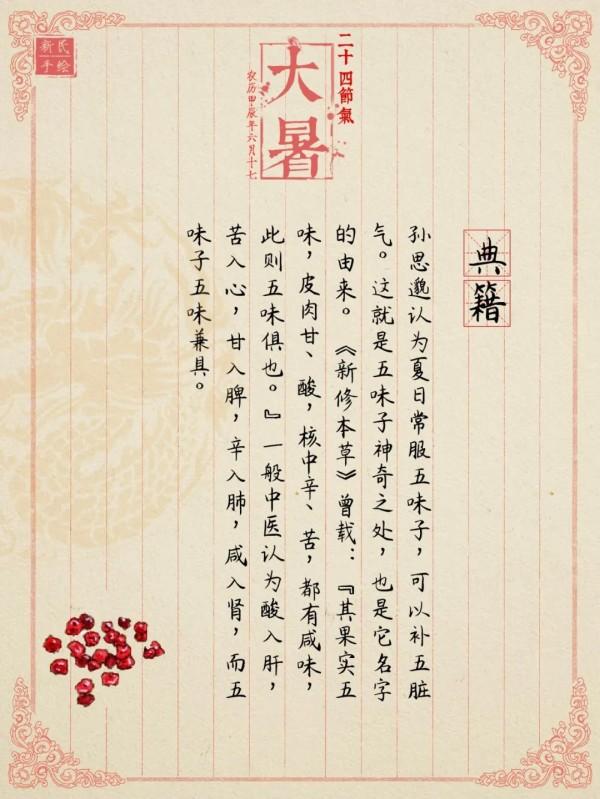 新民
手绘
二十四節氣
大暑
农历甲辰年六月十七
典籍
孙思邈认为夏日常服五味子，可以补五脏
气。这就是五味子神奇之处，也是它名字
的由来。《新修本草》曾载：『其果实五
味，皮肉甘、酸，核中辛、苦，都有咸味，
此则五味俱也。』一般中医认为酸入肝，
苦入心，甘入脾，辛入肺，咸入肾，而五
味子五味兼具。